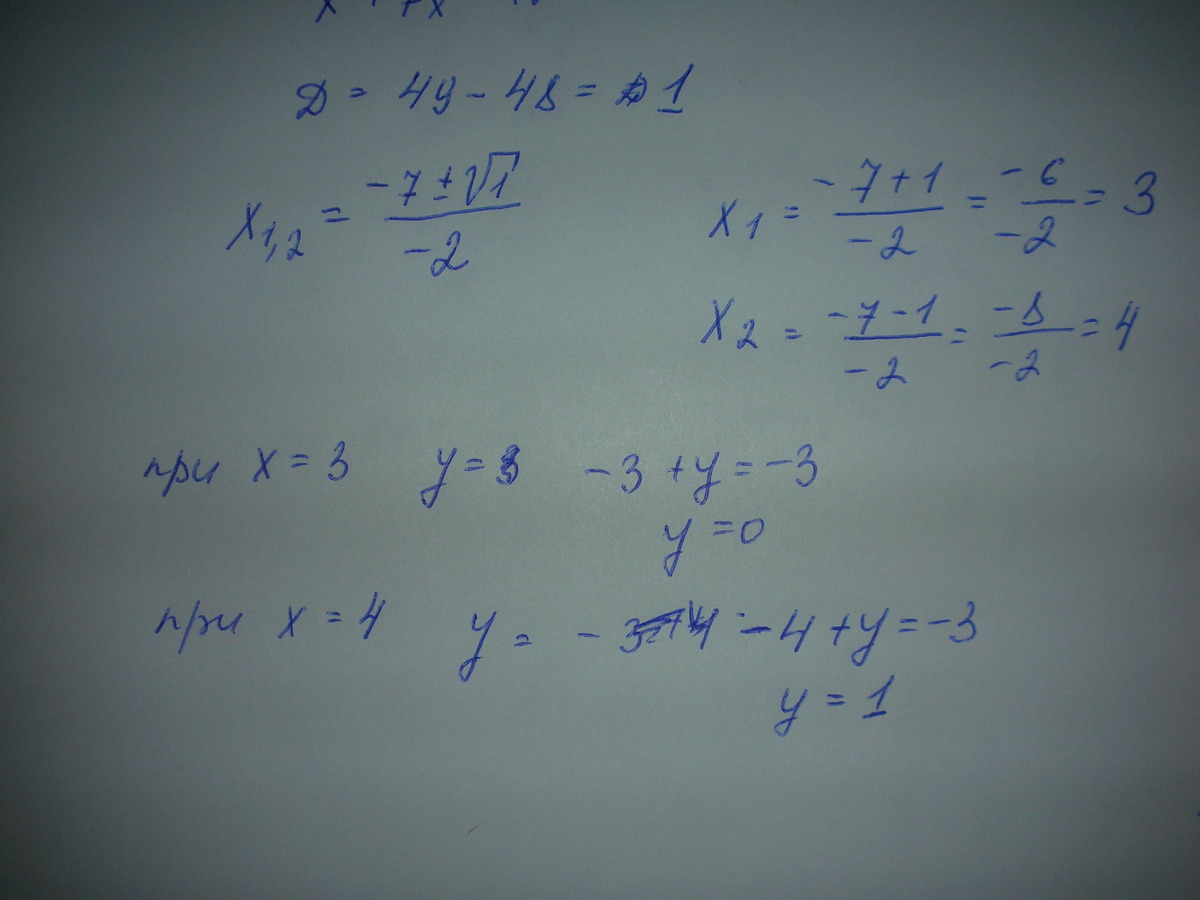 D = 49 - 48 = 1
x1,2 = (-7 ± √1) / -2
x1 = (-7+1) / -2 = -6 / -2 = 3
x2 = (-7-1) / -2 = -8 / -2 = 4
при x = 3 y = 3 -3 + y = -3
y = 0
при x = 4 y = - -4 + y = -3
y = 1